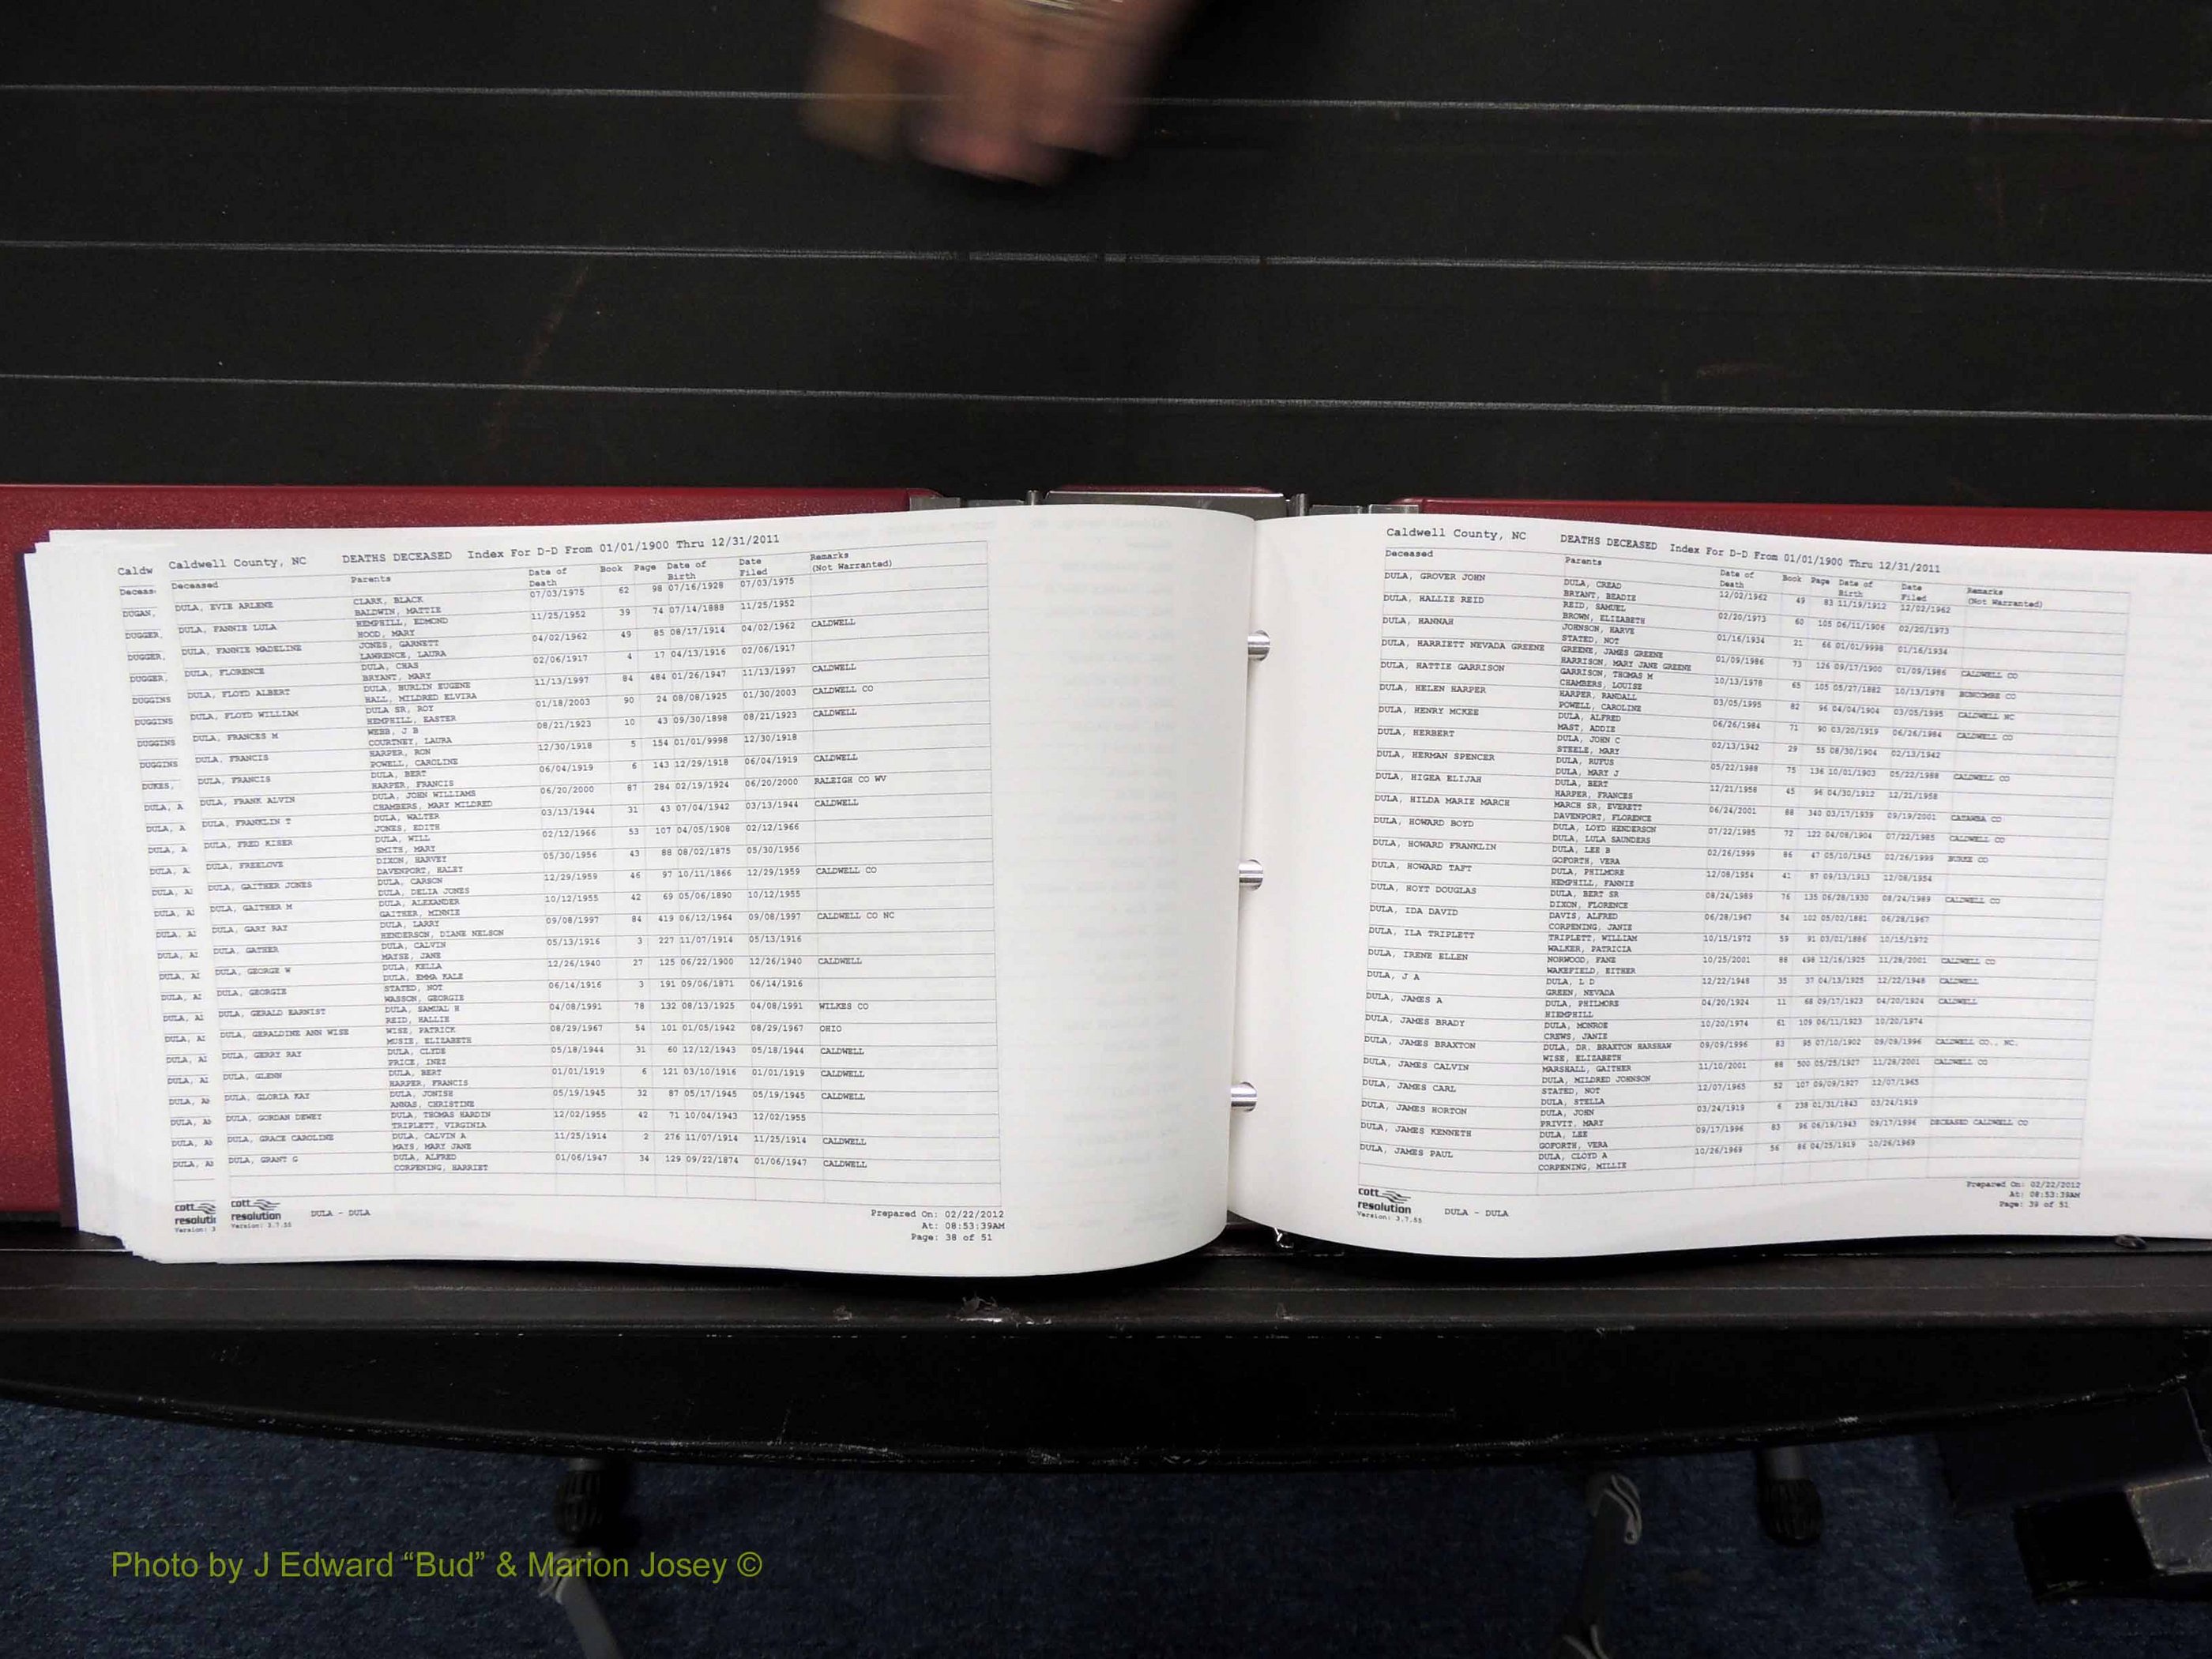 Caldw
Deceas
DUGAN,
DUGGER,
DUGGER,
DUGGER,
DUGGINS
DUGGINS
DUGGINS
DUGGINS
DUKES,
DULA, A
DULA, A
DULA, A
DULA, A
Caldwell County, NC DEATHS DECEASED Index For D-D From 01/01/1900 Thru 12/31/2011
Deceased Parents Date of Death Book Page Date of Birth Date Filed Remarks (Not Warranted)
DULA, EVIE ARLENE CLARK, BLACK 07/03/1975 62 98 07/16/1928 07/03/1975
BALDWIN, MATTIE
DULA, FANNIE LULA HEMPHILL, EDMOND 11/25/1952 39 74 07/14/1888 11/25/1952
HOOD, MARY
DULA, FANNIE MADELINE JONES, GARNETT 04/02/1962 49 85 08/17/1914 04/02/1962 CALDWELL
LAWRENCE, LAURA
DULA, FLORENCE DULA, CHAS 02/06/1917 4 17 04/13/1916 02/06/1917
BRYANT, MARY
DULA, FLOYD ALBERT DULA, BURLIN EUGENE 11/13/1997 84 484 01/26/1947 11/13/1997 CALDWELL
HALL, MILDRED ELVIRA
DULA, FLOYD WILLIAM DULA SR, ROY 01/18/2003 90 24 08/08/1925 01/30/2003 CALDWELL CO
HEMPHILL, EASTER
DULA, FRANCES M WEBB, J B 08/21/1923 10 43 09/30/1898 08/21/1923 CALDWELL
COURTNEY, LAURA
DULA, FRANCIS HARPER, RON 12/30/1918 5 154 01/01/9998 12/30/1918
POWELL, CAROLINE
DULA, FRANCIS DULA, BERT 06/04/1919 6 143 12/29/1918 06/04/1919 CALDWELL
HARPER, FRANCIS
DULA, FRANK ALVIN DULA, JOHN WILLIAMS 06/20/2000 87 284 02/19/1924 06/20/2000 RALEIGH CO WV
CHAMBERS, MARY MILDRED
DULA, FRANKLIN T DULA, WALTER 03/13/1944 31 43 07/04/1942 03/13/1944 CALDWELL
JONES, EDITH
DULA, FRED KISER DULA, WILL 02/12/1966 53 107 04/05/1908 02/12/1966
SMITH, MARY
DULA, FREELOVE DIXON, HARVEY 05/30/1956 43 88 08/02/1875 05/30/1956
DAVENPORT, HALEY
DULA, GAITHER JONES DULA, CARSON 12/29/1959 46 97 10/11/1866 12/29/1959 CALDWELL CO
DULA, DELIA JONES
DULA, GAITHER M DULA, ALEXANDER 10/12/1955 42 69 05/06/1890 10/12/1955
GAITHER, MINNIE
DULA, GARY RAY DULA, LARRY 09/08/1997 84 419 06/12/1964 09/08/1997 CALDWELL CO NC
HENDERSON, DIANE NELSON
DULA, GATHER DULA, CALVIN 05/13/1916 3 227 11/07/1914 05/13/1916
MAYSE, JANE
DULA, GEORGE W DULA, KELLA 12/26/1940 27 125 06/22/1900 12/26/1940 CALDWELL
DULA, EMMA KALE
DULA, GEORGIE STATED, NOT 06/14/1916 3 191 09/06/1871 06/14/1916
WASSON, GEORGIE
DULA, GERALD EARNIST DULA, SAMUAL H 04/08/1991 78 132 08/13/1925 04/08/1991 WILKES CO
REID, HALLIE
DULA, GERALDINE ANN WISE WISE, PATRICK 08/29/1967 54 101 01/05/1942 08/29/1967 OHIO
MUSIE, ELIZABETH
DULA, GERRY RAY DULA, CLYDE 05/18/1944 31 60 12/12/1943 05/18/1944 CALDWELL
PRICE, INEZ
DULA, GLENN DULA, BERT 01/01/1919 6 121 03/10/1916 01/01/1919 CALDWELL
HARPER, FRANCIS
DULA, GLORIA KAY DULA, JONISE 05/19/1945 32 87 05/17/1945 05/19/1945 CALDWELL
ANNAS, CHRISTINE
DULA, GORDAN DEWEY DULA, THOMAS HARDIN 12/02/1955 42 71 10/04/1943 12/02/1955
TRIPLETT, VIRGINIA
DULA, GRACE CAROLINE DULA, CALVIN A 11/25/1914 2 276 11/07/1914 11/25/1914 CALDWELL
MAYS, MARY JANE
DULA, GRANT G DULA, ALFRED 01/06/1947 34 129 09/22/1874 01/06/1947 CALDWELL
CORPENING, HARRIET
cott resolution Version: 3.7.55 DULA - DULA
Prepared On: 02/22/2012
At: 08:53:39AM
Page: 38 of 51
Caldwell County, NC DEATHS DECEASED Index For D-D From 01/01/1900 Thru 12/31/2011
Deceased Parents Date of Death Book Page Date of Birth Date Filed Remarks (Not Warranted)
DULA, GROVER JOHN DULA, CREAD 12/02/1962 49 83 11/19/1912 12/02/1962
BRYANT, BEADIE
DULA, HALLIE REID REID, SAMUEL 02/20/1973 60 105 06/11/1906 02/20/1973
BROWN, ELIZABETH
DULA, HANNAH JOHNSON, HARVE 01/16/1934 21 66 01/01/9998 01/16/1934
STATED, NOT
DULA, HARRIETT NEVADA GREENE GREENE, JAMES GREENE 01/09/1986 73 126 09/17/1900 01/09/1986 CALDWELL CO
HARRISON, MARY JANE GREENE
DULA, HATTIE GARRISON GARRISON, THOMAS M 10/13/1978 65 105 05/27/1882 10/13/1978 BUNCOMBE CO
CHAMBERS, LOUISE
DULA, HELEN HARPER HARPER, RANDALL 03/05/1995 82 96 04/04/1904 03/05/1995 CALDWELL NC
POWELL, CAROLINE
DULA, HENRY MCKEE DULA, ALFRED 06/26/1984 71 90 03/20/1919 06/26/1984 CALDWELL CO
MAST, ADDIE
DULA, HERBERT DULA, JOHN C 02/13/1942 29 55 08/30/1904 02/13/1942
STEELE, MARY
DULA, HERMAN SPENCER DULA, RUFUS 05/22/1988 75 136 10/01/1903 05/22/1988 CALDWELL CO
DULA, MARY J
DULA, HIGEA ELIJAH DULA, BERT 12/21/1958 45 96 04/30/1912 12/21/1958
HARPER, FRANCES
DULA, HILDA MARIE MARCH MARCH SR, EVERETT 06/24/2001 88 340 03/17/1939 09/19/2001 CATAWBA CO
DAVENPORT, FLORENCE
DULA, HOWARD BOYD DULA, LOYD HENDERSON 07/22/1985 72 122 04/08/1904 07/22/1985 CALDWELL CO
DULA, LULA SAUNDERS
DULA, HOWARD FRANKLIN DULA, LEE B 02/26/1999 86 47 05/10/1945 02/26/1999 BURKE CO
GOFORTH, VERA
DULA, HOWARD TAFT DULA, PHILMORE 12/08/1954 41 87 09/13/1913 12/08/1954
HEMPHILL, FANNIE
DULA, HOYT DOUGLAS DULA, BERT SR 08/24/1989 76 135 06/28/1930 08/24/1989 CALDWELL CO
DIXON, FLORENCE
DULA, IDA DAVID DAVIS, ALFRED 06/28/1967 54 102 05/02/1881 06/28/1967
CORPENING, JANIE
DULA, ILA TRIPLETT TRIPLETT, WILLIAM 10/15/1972 59 91 03/01/1886 10/15/1972
WALKER, PATRICIA
DULA, IRENE ELLEN NORWOOD, FANE 10/25/2001 88 498 12/16/1925 11/28/2001 CALDWELL CO
WAKEFIELD, EITHER
DULA, J A DULA, L D 12/22/1948 35 37 04/13/1925 12/22/1948 CALDWELL
GREEN, NEVADA
DULA, JAMES A DULA, PHILMORE 04/20/1924 11 68 09/17/1923 04/20/1924 CALDWELL
HIEMPHILL
DULA, JAMES BRADY DULA, MONROE 10/20/1974 61 109 06/11/1923 10/20/1974
CREWS, JANIE
DULA, JAMES BRAXTON DULA, DR. BRAXTON HARSHAW 09/09/1996 83 95 07/10/1902 09/09/1996 CALDWELL CO., NC.
WISE, ELIZABETH
DULA, JAMES CALVIN MARSHALL, GAITHER 11/10/2001 88 500 05/25/1927 11/28/2001 CALDWELL CO
DULA, MILDRED JOHNSON
DULA, JAMES CARL STATED, NOT 12/07/1965 52 107 09/09/1927 12/07/1965
DULA, STELLA
DULA, JAMES HORTON DULA, JOHN 03/24/1919 6 238 01/31/1843 03/24/1919
PRIVIT, MARY
DULA, JAMES KENNETH DULA, LEE 09/17/1996 83 96 06/19/1943 09/17/1996 DECEASED CALDWELL CO
GOFORTH, VERA
DULA, JAMES PAUL DULA, CLOYD A 10/26/1969 56 86 04/25/1919 10/26/1969
CORPENING, MILLIE
cott resolution Version: 3.7.55 DULA - DULA
Prepared On: 02/22/2012
At: 08:53:39AM
Page: 39 of 51
Photo by J Edward “Bud” & Marion Josey ©